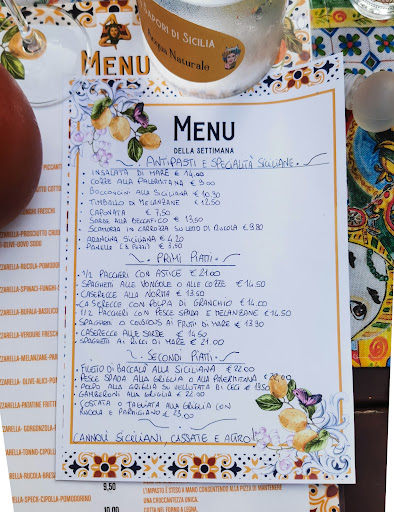 SAPORI DI SICILIA
Acqua Naturale
MENU
MENU
DELLA SETTIMANA
ANTIPASTI E SPECIALITÀ SICILIANE
- INSALATA DI MARE € 14.00
- COZZE ALLA PALERMITANA € 9.00
- BOCCONCINI ALLA SICILIANA € 10.30
- TIMBALLO DI MELANZANE € 12.50
- CAPONATA € 7.50
- SARDE ALLA BECCAFICO € 13.50
- SCAMORZA IN CARROZZA SU LETTO DI RUCOLA € 9.80
- ARANCINA SICILIANA € 4.20
- PANELLE (3 PEZZI) € 3.50
PRIMI PIATTI
- 1/2 PACCHERI CON ASTICE € 21.00
- SPAGHETTI ALLE VONGOLE O ALLE COZZE € 14.50
- CASERECCE ALLA NORMA € 13.50
- CASERECCE CON POLPA DI GRANCHIO € 14.00
- 1/2 PACCHERI CON PESCE SPADA E MELANZANE € 14.50
- SPAGHETTI O COUSCOUS AI FRUTTI DI MARE € 13.30
- CASERECCE ALLE SARDE € 14.50
- SPAGHETTI AI RICCI DI MARE € 21.00
SECONDI PIATTI
- FILETTO DI BACCALÀ ALLA SICILIANA € 22.00
- PESCE SPADA ALLA GRIGLIA O ALLA PALERMITANA € 22.00
- POLPO ALLA GRIGLIA SU VELLUTATA DI CECI € 13.50
- GAMBERONI ALLA GRIGLIA € 22.00
- COSTATA O TAGLIATA ALLA GRIGLIA CON
RUCOLA E PARMIGIANO € 23.00
CANNOLI SICILIANI, CASSATE E ALTRO!
PICCANT
ZARELLA-PROSCIUTTO COTTO
FUNGHI FRESCHI
ZZARELLA-PROSCIUTTO CRUDO
ZZARELLA-RUCOLA-POMODO
ZZARELLA-SPINACI-FUNGHI
ZZARELLA-BUFALA-BASILICO
ZZARELLA-VERDURE FRESCHE
ZZARELLA-MELANZANE-PAR
ZZARELLA-OLIVE-ALICI-POM
ZZARELLA-PATATINE FRITTE
ZARELLA-GORGONZOLA-
ZARELLA-TONNO-CIPOLLA
RELLA-RUCOLA-BRES
RELLA-SPECK-CIPOLLA-POMODORINO
9,50
10,00
L'IMPASTO È STESO A MANO CONSENTENDO ALLA PIZZA DI MANTENERE
UNA CROCCANTEZZA UNICA.
COTTA NEL FORNO A LEGNA.